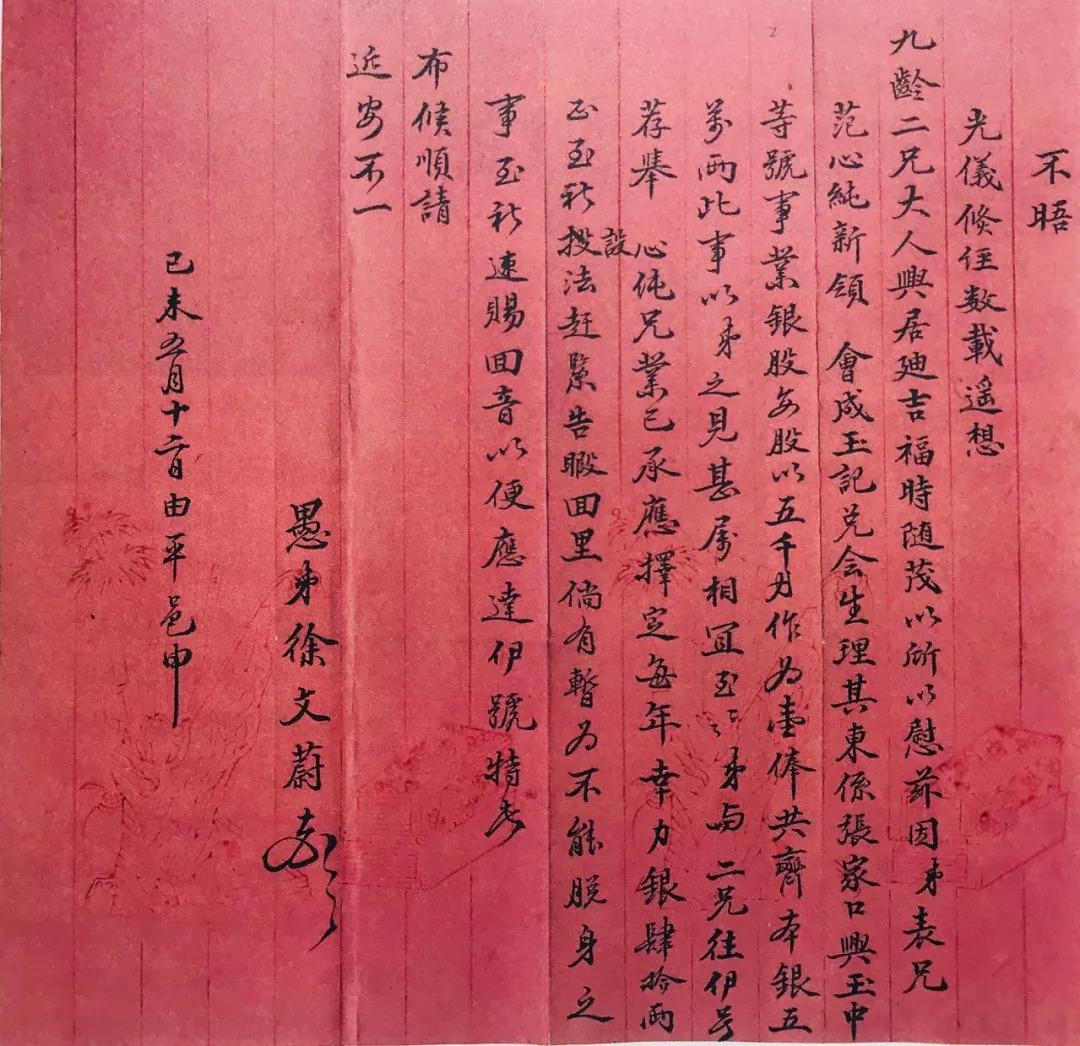 不晤
光儀倏徃数載遥想
九齡二兄大人興居廸吉福時随茂以所以慰兹因弟表兄
范心純新領 會成玉記兑会生理其東係張家口興玉中
等號事業銀股每股以五千力作为壹俸共齊本銀五
萬両此事以弟之見甚属相宜至 弟与 二兄往伊号
荐舉 心純兄業已承應擇定每年幸力銀肆拾両
正至祈設法赶緊告暇回里倘有暫为不能脱身之
事至祈速賜回音以便應達伊號特此
布候順請
近安不一
愚弟徐文蔚
己未五月十二日由平邑申